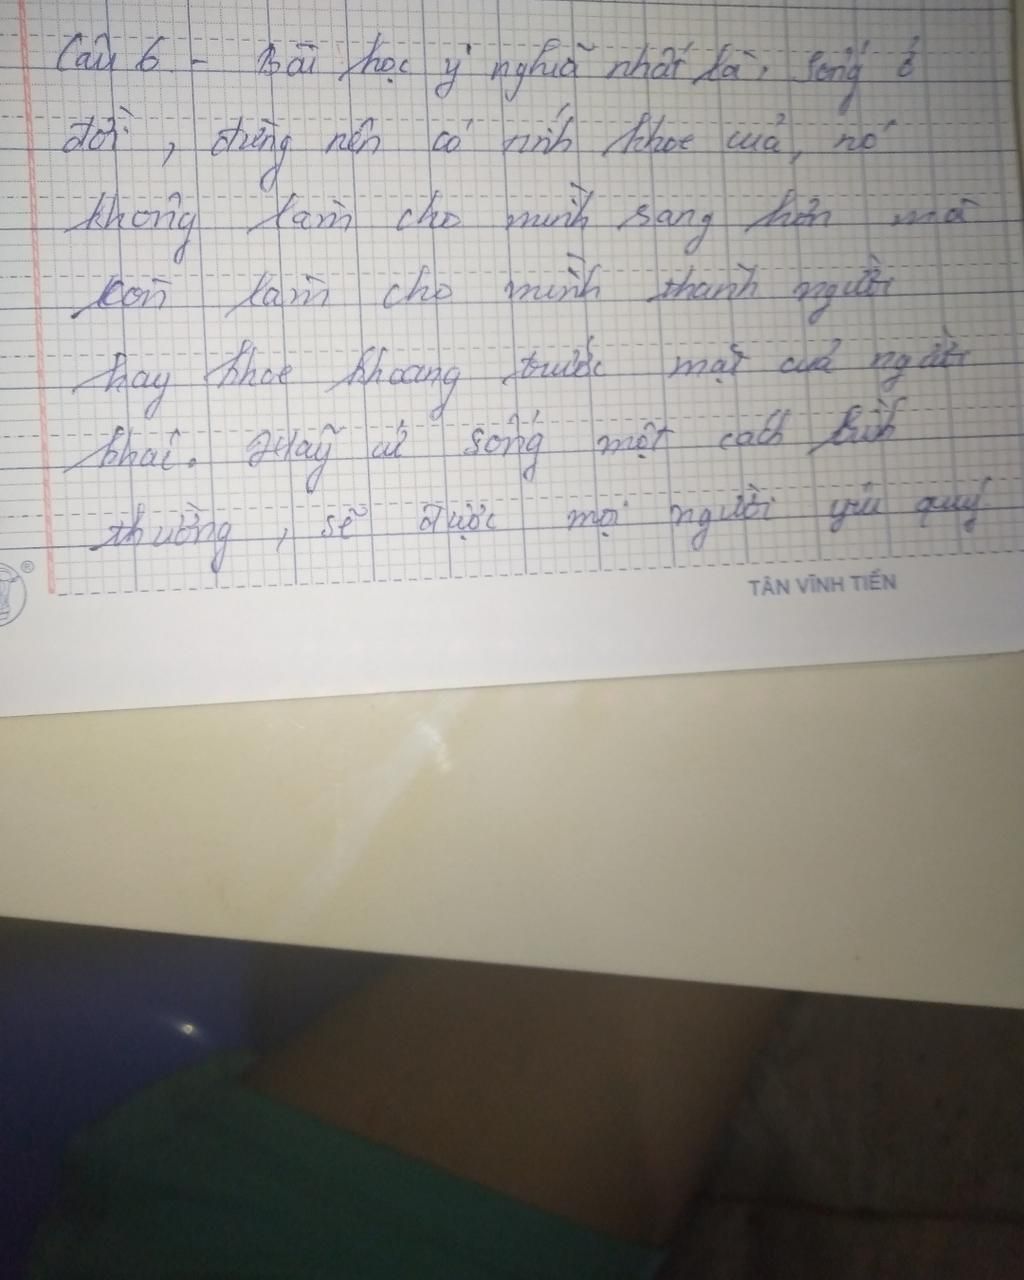 Câu 6 - Bài học ý nghĩa nhất là, sống ở
đời, đừng nên có tính khoe của, nó
không làm cho mình sang hơn mà
còn làm cho mình thành người
hay khoe khoang trước mặt của người
khác. Hãy cứ sống một cách bình
thường, sẽ được mọi người yêu quý
®
TÂN VĨNH TIẾN